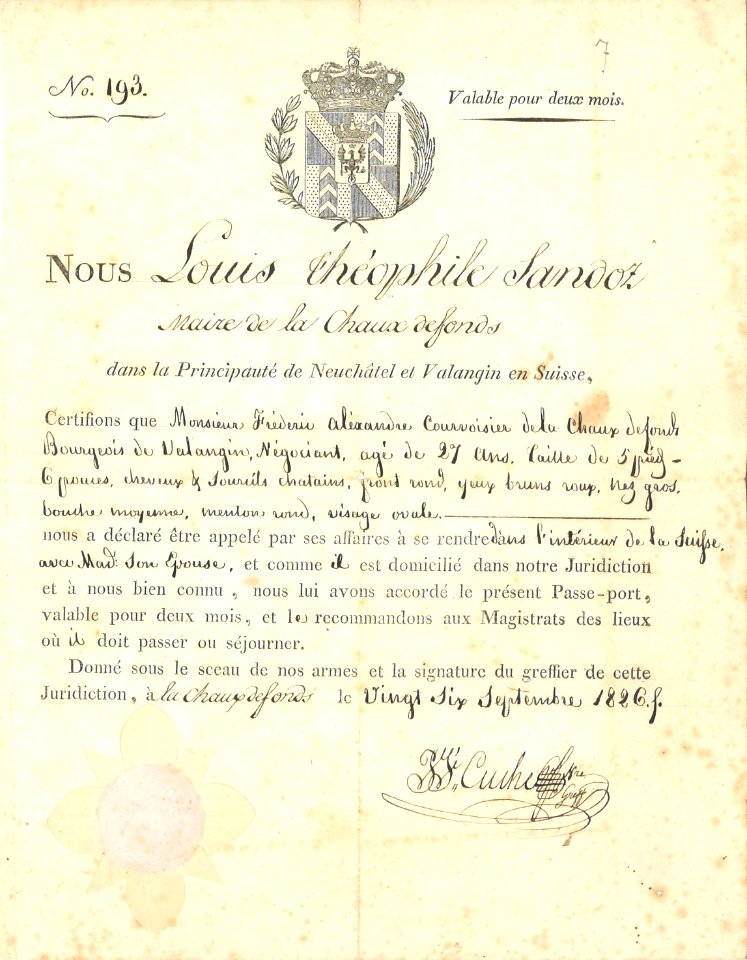 7
No. 193.
Valable pour deux mois.
Nous Louis Théophile Sandoz
Maire de la Chaux defonds
dans la Principauté de Neuchâtel et Valangin en Suisse,
Certifions que Monsieur Fréderic Aléxandre Courvoisier dela Chaux defonds
Bourgeois de Valangin, Négociant, agé de 27 Ans. Taille de 5 pieds
6 pouces, cheveux & Sourcils chatains, front rond, yeux bruns roux, nez gros,
bouche moyenne, menton rond, visage ovale.
nous a déclaré être appelé par ses affaires à se rendre dans l'intérieur de la Suisse,
avec Mad. Son Epouse, et comme il est domicilié dans notre Juridiction
et à nous bien connu, nous lui avons accordé le présent Passe-port,
valable pour deux mois, et le recommandons aux Magistrats des lieux
où il doit passer ou séjourner.
Donné sous le sceau de nos armes et la signature du greffier de cette
Juridiction, à la Chauxdefonds le Vingt Six Septembre 1826.
Cuche
Greff